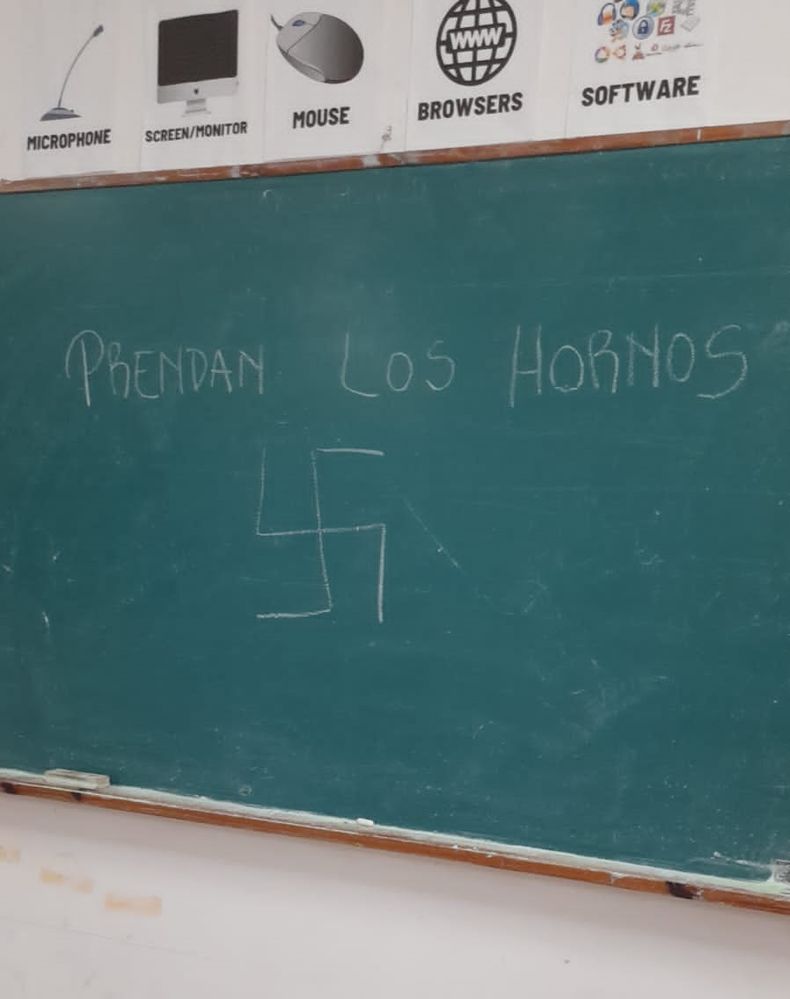 MICROPHONE
SCREEN/MONITOR
MOUSE
WWW
BROWSERS
SOFTWARE
PRENDAN LOS HORNOS